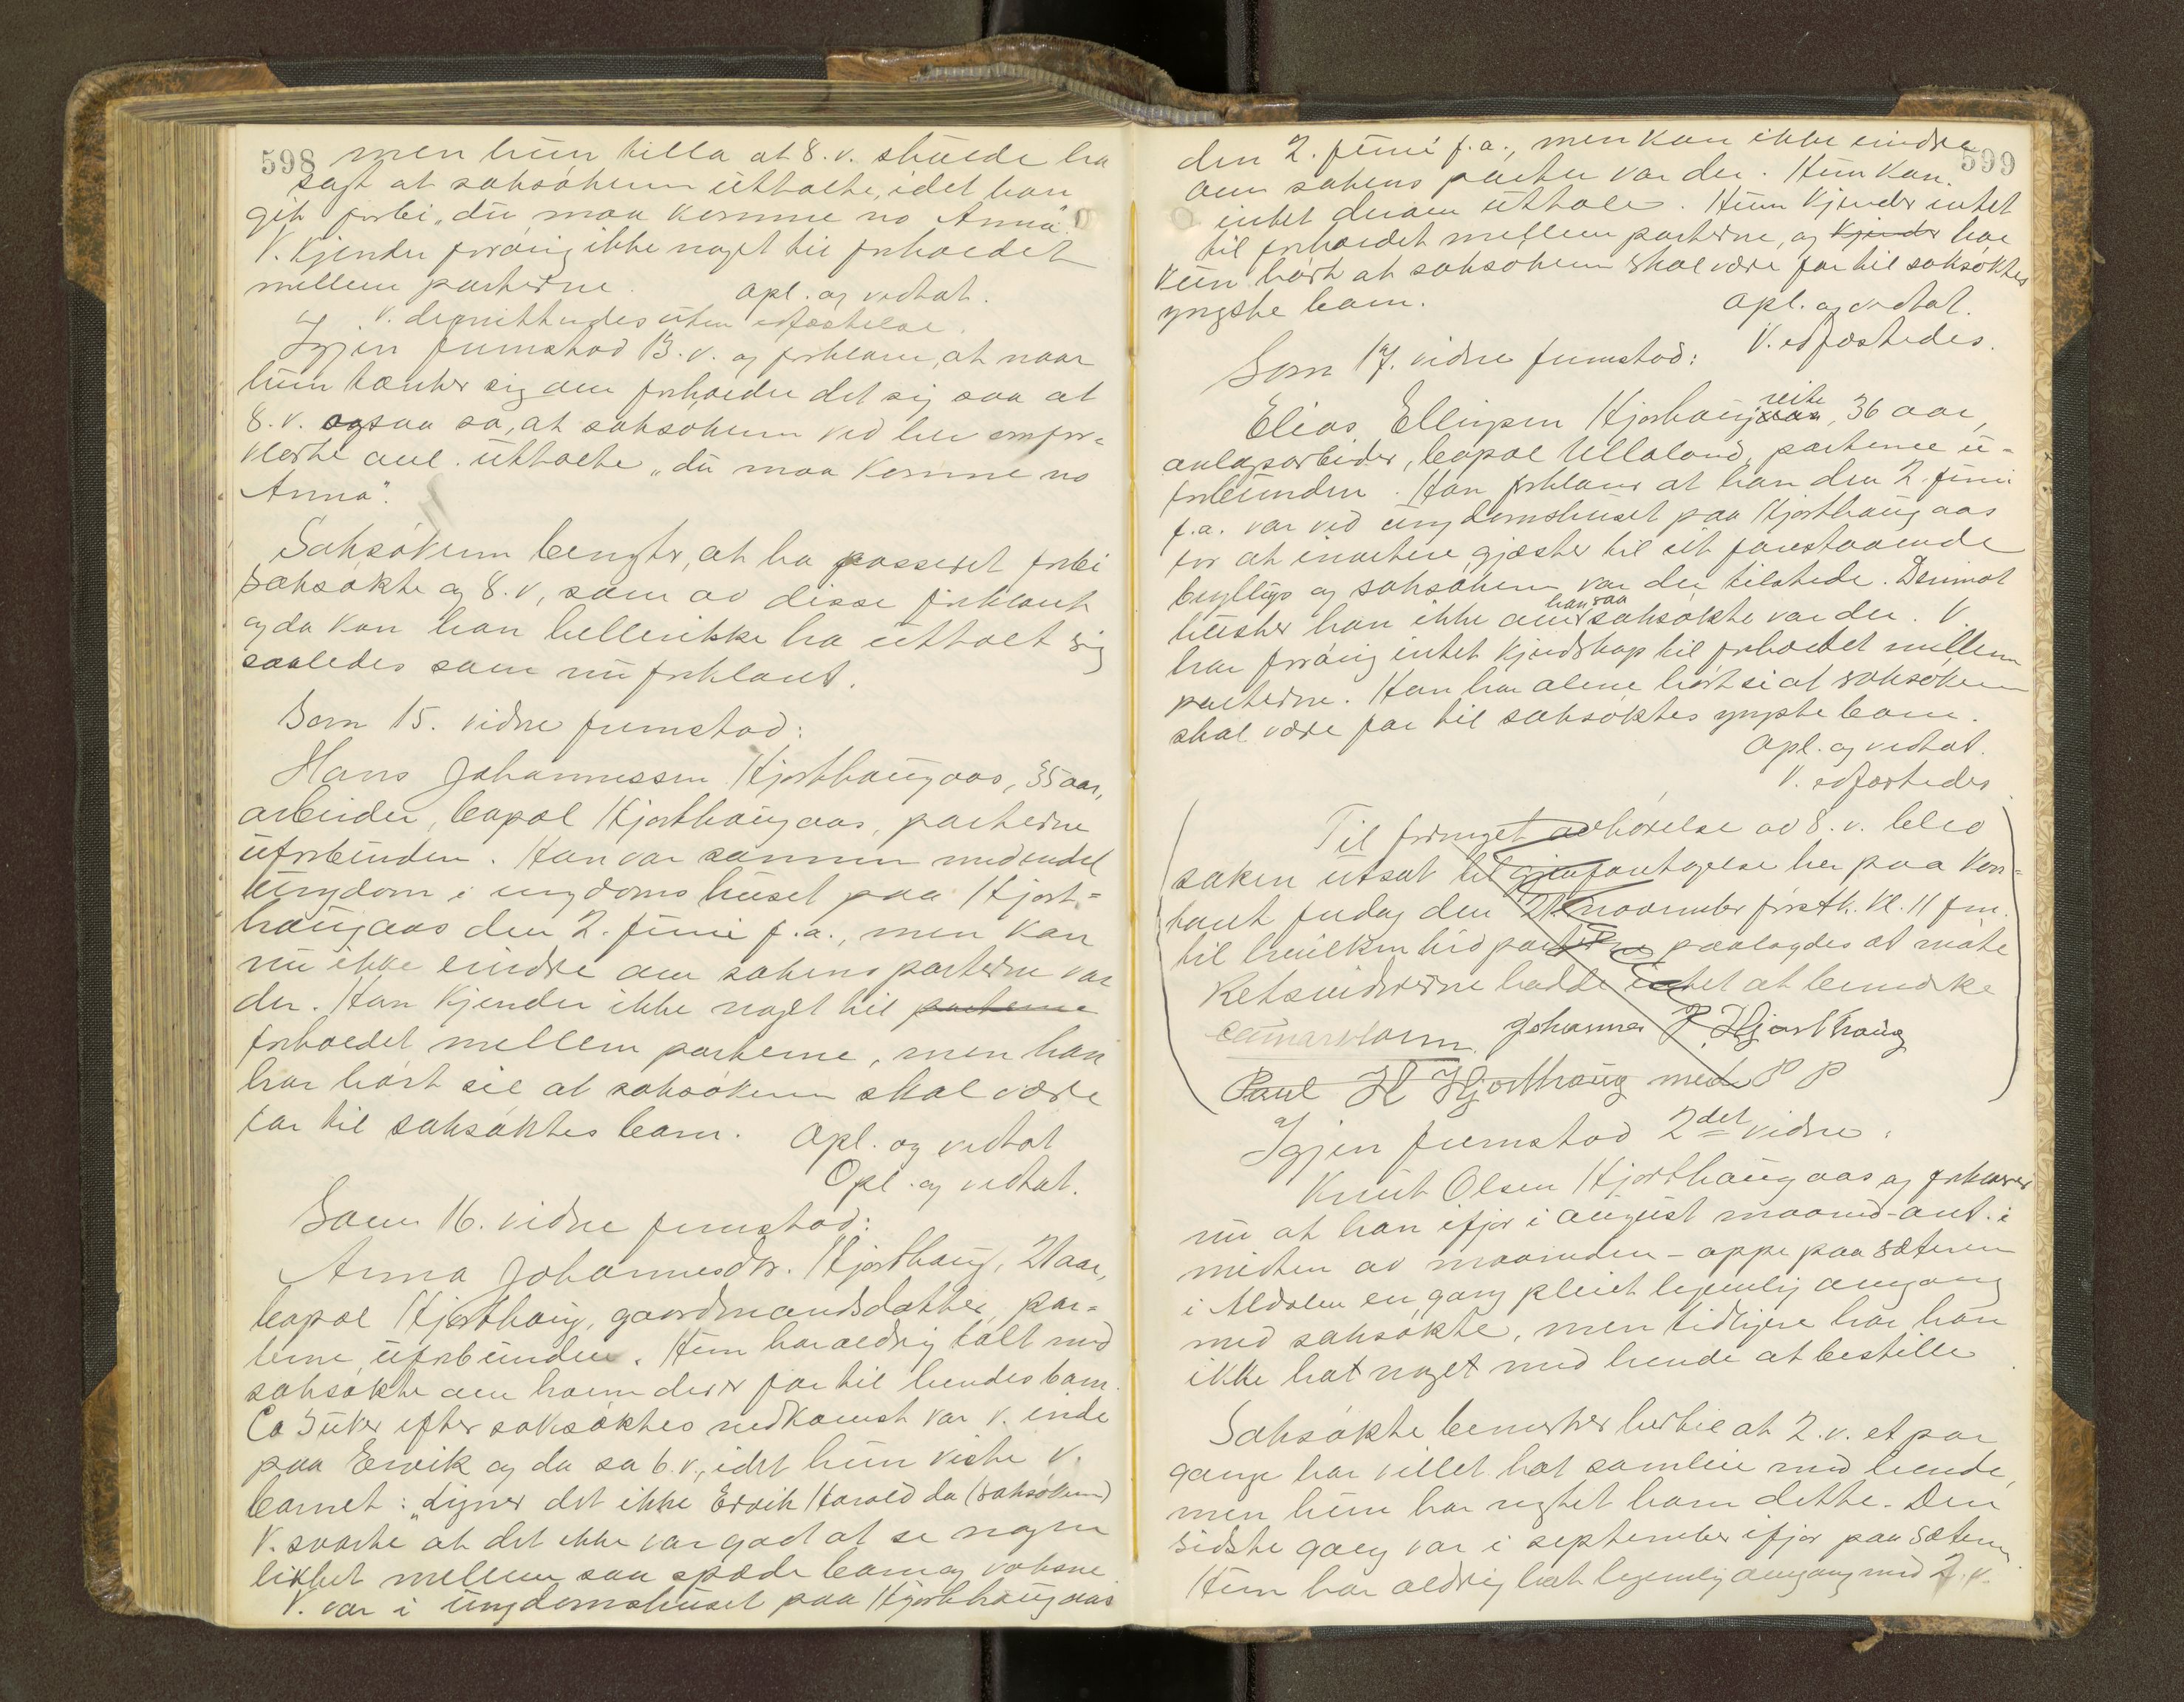 598
men hun tilla at 8. v. skulde ha
sagt at saksøkeren uttalte, idet han
gik forbi „du maa komme no Anna".
V. kjender forøvrig ikke noget til forholdet
mellem parterne. Opl. og vedtat.
V. dimitteredes uten edfæstelse.
Igjen fremstod 13. v. og forklarer, at naar
hun tænker sig om forholder det sig saa at
8. v. ogsaa sa, at saksøkeren ved her omfor-
klarte anl. uttalte „du maa komme no
Anna".
Saksøkeren benegter, at ha passeret forbi
saksøkte og 8. v., som av disse forklart
og da kan han heller ikke ha uttalt sig
saaledes som nu forklart.
Som 15. vidne fremstod:
Hans Johannessen Hjorthaugaas, 35 aar,
arbeider, bopæl Hjorthaugaas, parterne
uforbunden. Han var sammen med endel
ungdom i ungdomshuset paa Hjort-
haugaas den 2. juni f.a., men kan
nu ikke erindre om sakens parterne var
der. Han kjender ikke noget til parterne
forholdet mellem parterne, men han
har hørt sie at saksøkeren skal være
far til saksøktes barn. Opl. og vedtat
Opl. og vedtat.
Som 16. vidne fremstod:
Anna Johannesdtr. Hjorthaug, 21 aar,
bopæl Hjorthaug, gaardmandsdatter, par-
terne uforbunden. Hun har aldrig talt med
saksøkte om hvem der er far til hendes barn.
Ca 3 uker efter saksøktes nedkomst var v. inde
paa Ervik og da sa 6. v., idet hun viste v.
barnet: „Ligner det ikke Ervik Harald da (saksøkeren)
V. svarte at det ikke var godt at se nogen
likhet mellem saa spæde barn og voksne
V. var i ungdomshuset paa Hjorthaugaas
599
den 2. juni f.a., men kan ikke erindre
om sakens parter var der. Hun kan
intet derom uttale. Hun kjender intet
til forholdet mellem parterne, og kjender har
kun hørt at saksøkeren skal være far til saksøktes
yngste barn. Opl. og vedtat.
V. edfæstedes.
Som 17. vidne fremstod:
Elias Ellingsen Hjorthaugreite, 36 aar,
anlægsarbeider, bopæl Ulleland, parterne u-
forbunden. Han forklarer at han den 2. juni
f.a. var ved ungdomshuset paa Hjorthaugaas
for at invitere gjæster til sit forestaaende
bryllup og saksøkeren var der tilstede. Derimot
husker han ikke om han saa saksøkte var der. V.
har forøvrig intet kjendskap til forholdet mellem
parterne. Han har alene hørt si at saksøkeren
skal være far til saksøktes yngste barn.
Opl. og vedtat.
V. edfæstedes
Til fornyet avhørelse av 8. v. blev
saken utsat til gjenfortagelse her paa kon-
toret fredag den 21. november førstk. kl. 11 fm.
til hvilken tid parterne paalagdes at møte
Retsvidnerne hadde intet at bemerke
Johannes P. Hjorthaug
Paul H Hjorthaug med P P
Igjen fremstod 2det vidne:
Knut Olsen Hjorthaugaas og forklarer
nu at han ifjor i august maaned - ant. i
midten av maaneden - oppe paa sæteren
i Aldalen en gang pleiet legemlig omgang
med saksøkte, men tidligere har han
ikke hat noget med hende at bestille
Saksøkte bemerker hertil at 2. v. et par
gange har villet hat samleie med hende,
men hun har negtet ham dette. Den
sidste gang var i september ifjor paa sæteren.
Hun har aldrig hat legemlig omgang med 2. v.